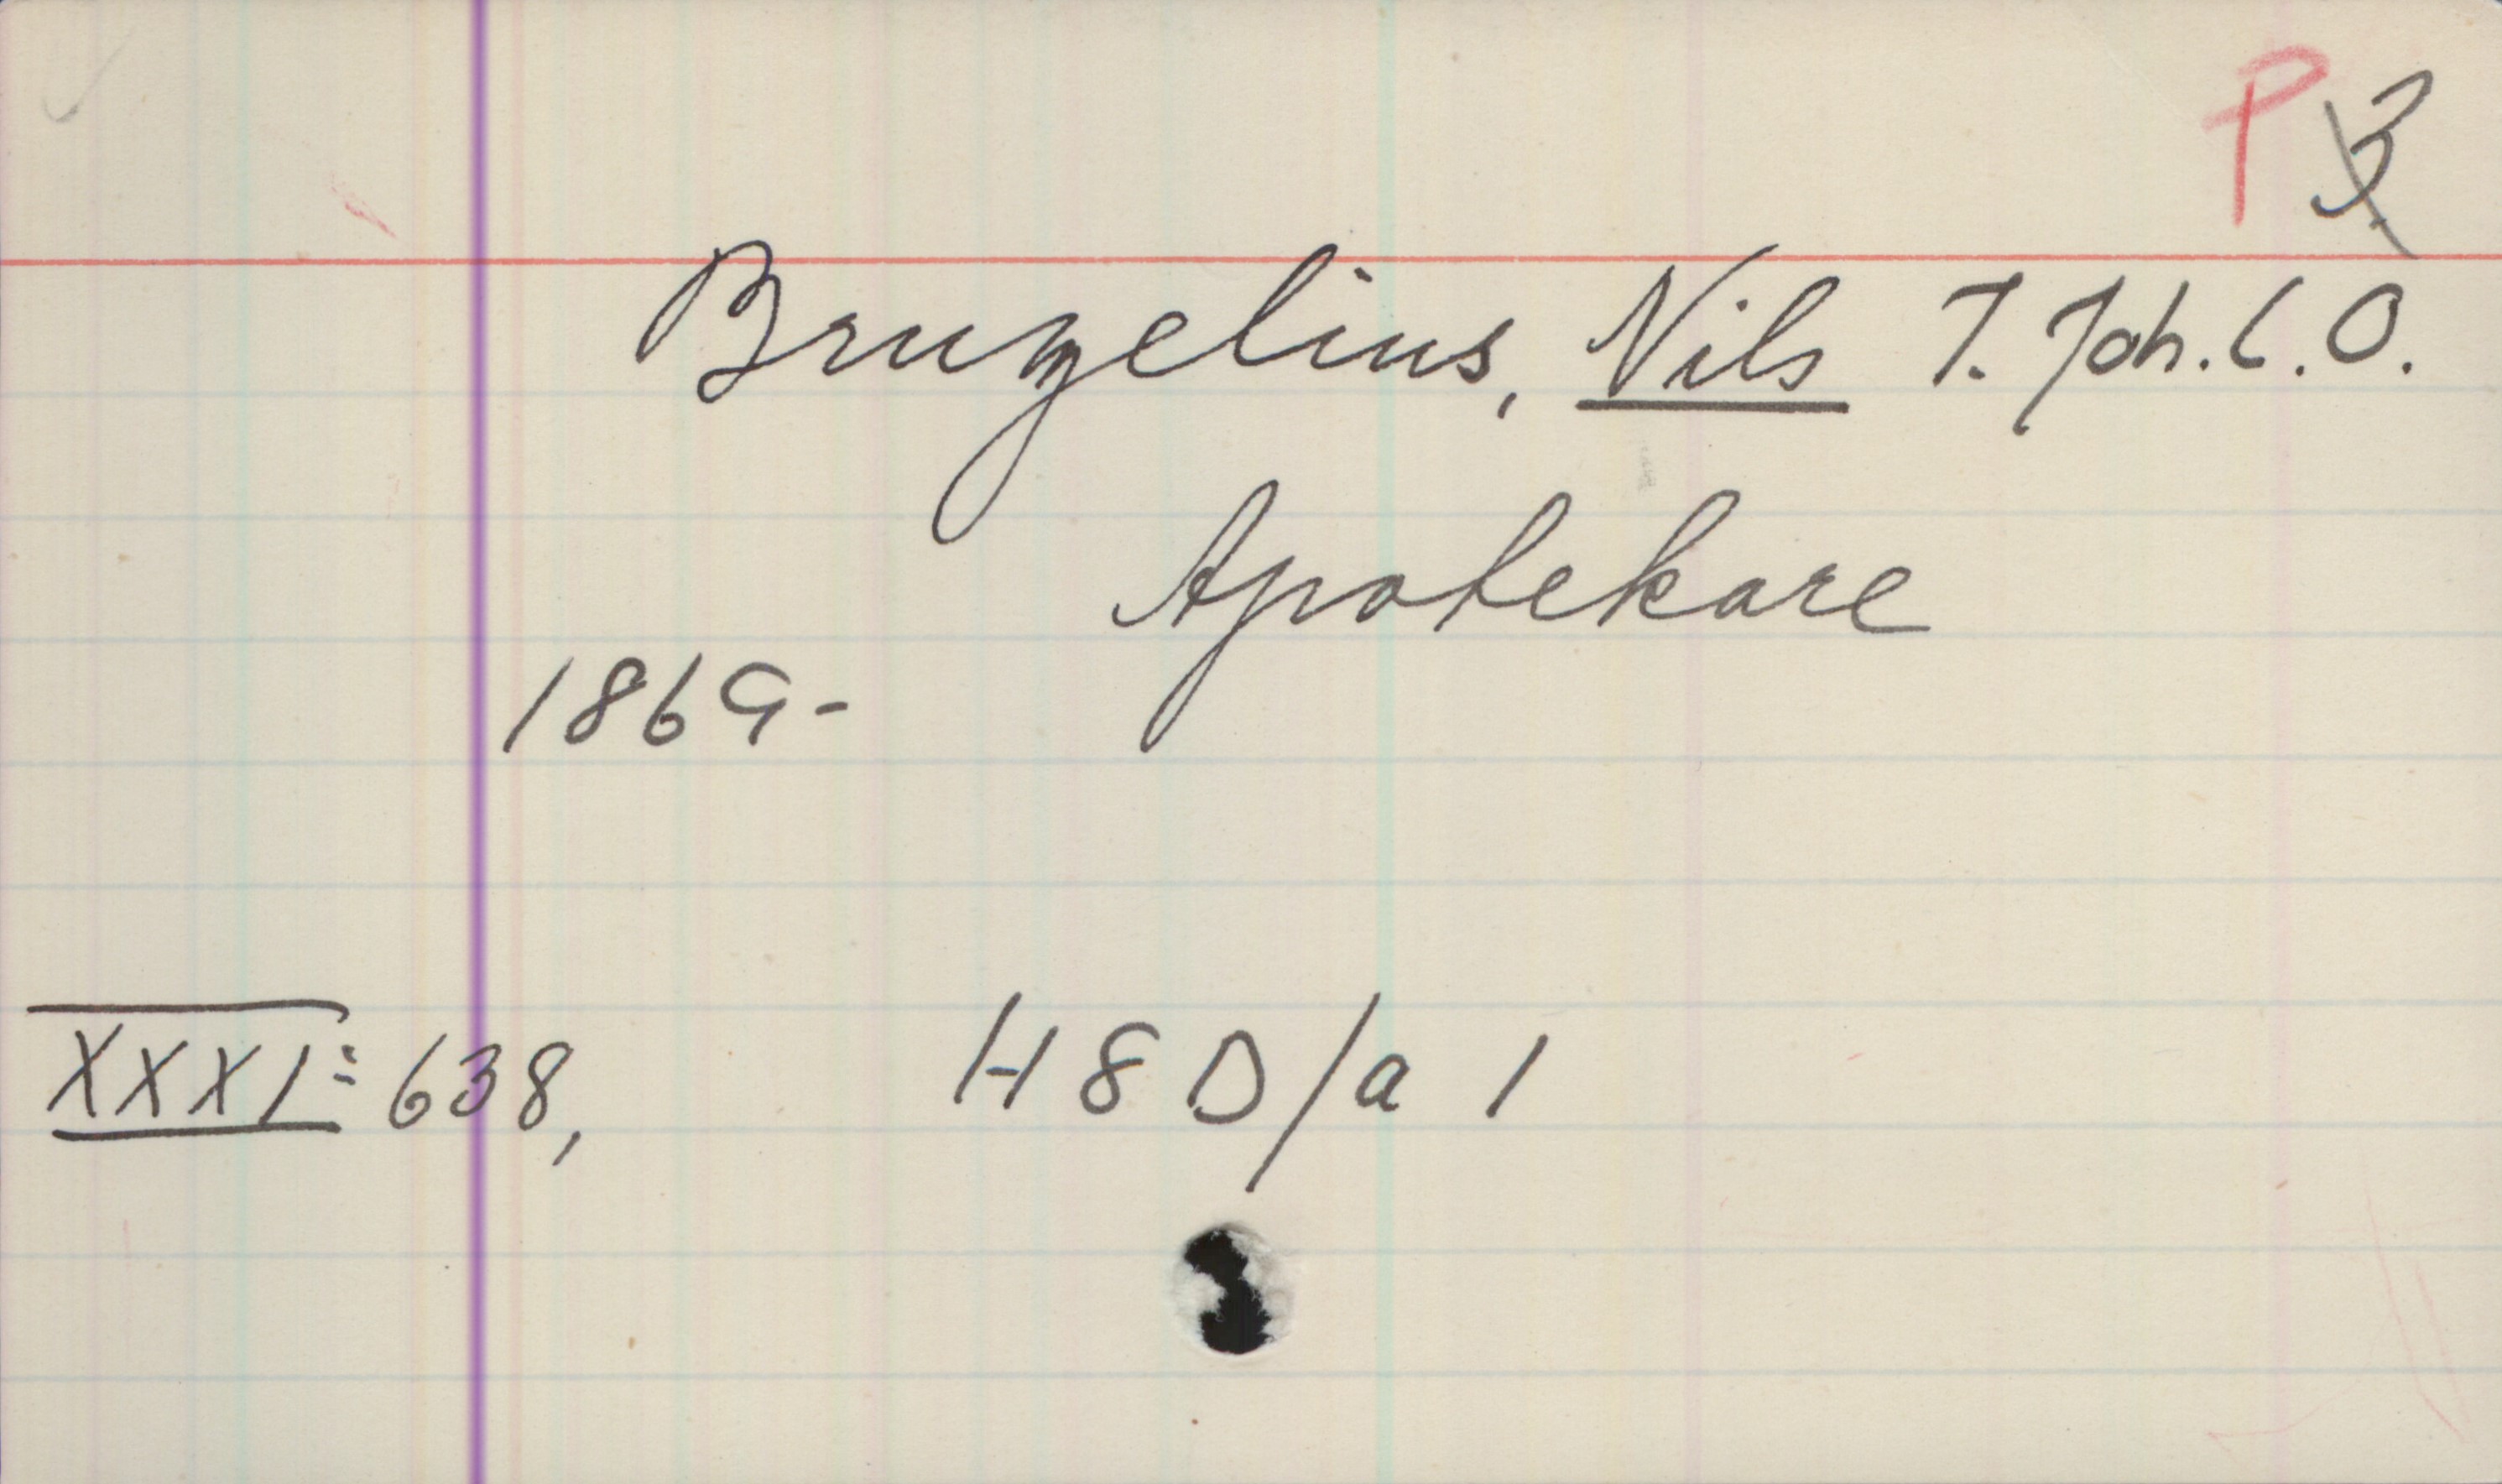 P 3
Bruzelius, Nils T. Joh. C. O.
Apotekare
1869-
XXXI: 638, H 8 D/a 1